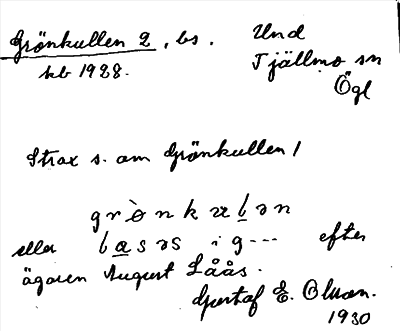 Grönkullen 2, bs. Und
kb 1928. Tjällmo sn
Ögl
Strax s. om Grönkullen 1
eller i g--- efter
ägaren August Låås.
Gustaf E. Olson.
1930